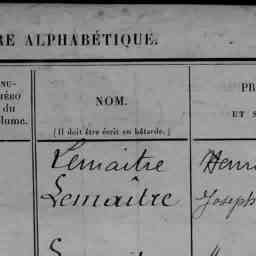 RE ALPHABÉTIQUE.
NU-
MÉRO
du
lume.
NOM.
(Il doit être écrit en bâtarde.)
PR
ET S
Lemaitre Henri
Lemaître Joseph